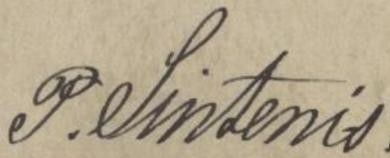 P. Sintenis.